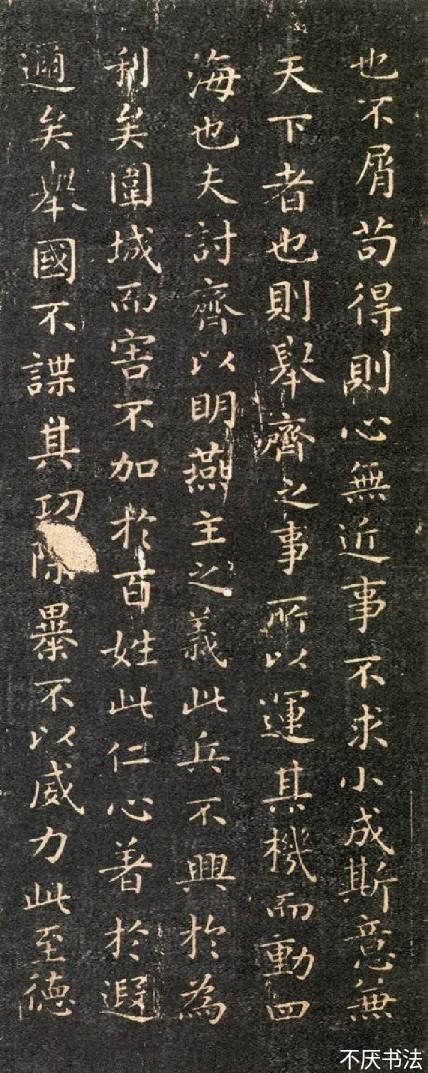 也不屑苟得則心無近事不求小成斯意無
天下者也則舉齊之事所以運其機而動四
海也夫討齊以明燕主之義此兵不興於為
利矣圍城而害不加於百姓此仁心著於遐
邇矣舉國不謀其功除暴不以威力此至德
不厌书法